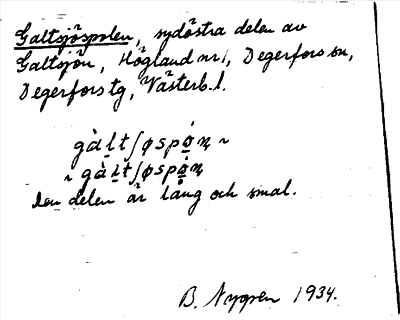 Galtsjöspolen, sydöstra delen av
Galtsjön, Högland nr 1, Degerfors sn,
Degerfors tg, Västerb. l.
gàl̲t∫øspó̲n ~
~ gàl̲t∫øspó̲n
Den delen är lång och smal.
B. Nygren 1934.